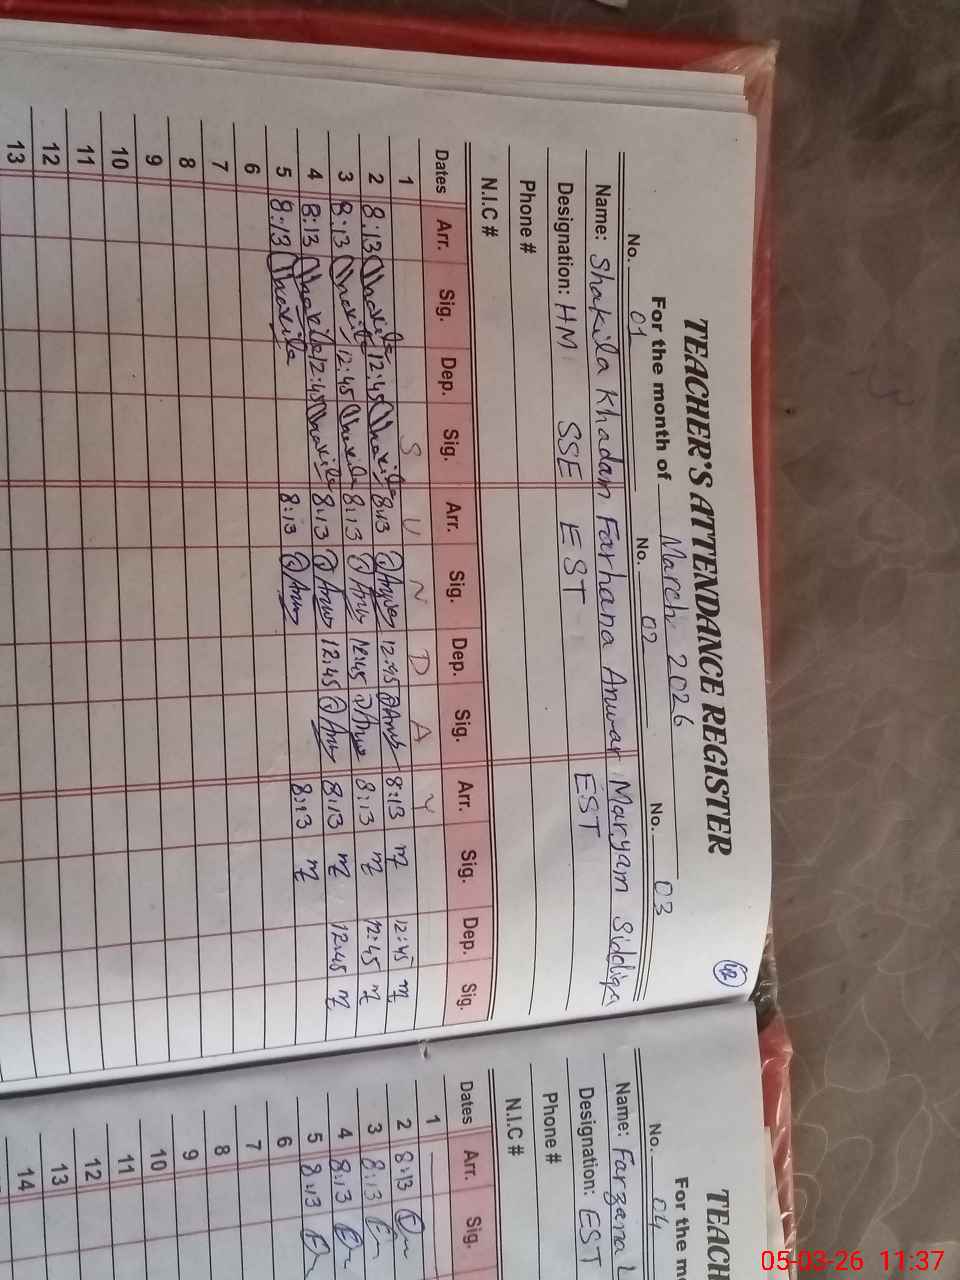 TEACHER'S ATTENDANCE REGISTER
42
For the month of March 2026
No. 01 No. 02 No. 03
Name: Shakila Khadam Farhana Anwar Maryam Siddiqa
Designation: HM SSE EST EST
Phone #
N.I.C #
Dates Arr. Sig. Dep. Sig. Arr. Sig. Dep. Sig. Arr. Sig. Dep. Sig.
1 S U N D A Y
2 8:13 Shakila 12:45 Shakila 8:13 12:45 8:13 m 12:45 m
3 8:13 Shakila 12:45 Shakila 8:13 12:45 8:13 m 12:45 m
4 8:13 Shakila 12:45 Shakila 8:13 12:45 8:13 m 12:45 m
5 8:13 Shakila 8:13 8:13 m
6
7
8
9
10
11
12
13
TEACH
For the m
No. 04
Name: Farzana
Designation: EST
Phone #
N.I.C #
Dates Arr. Sig.
1
2 8:13
3 8:13
4 8:13
5 8:13
6
7
8
9
10
11
12
13
14
05-03-26 11:37